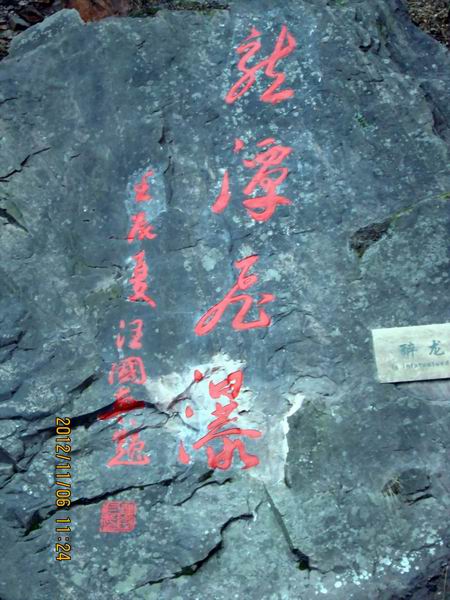 龙潭飞瀑
壬辰夏 汪國真题
醉龙
2012/11/06 11:24